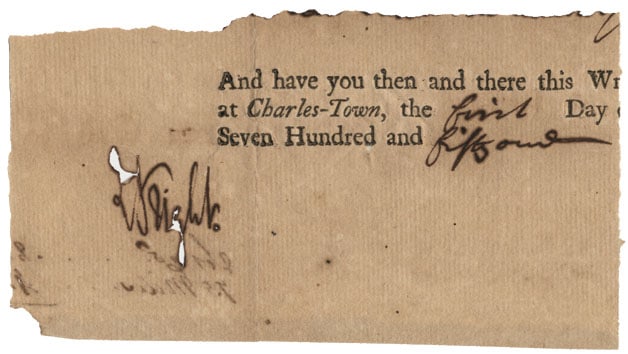 And have you then and there this Wr
at Charles-Town, the first Day
Seven Hundred and fifty one
Wright.